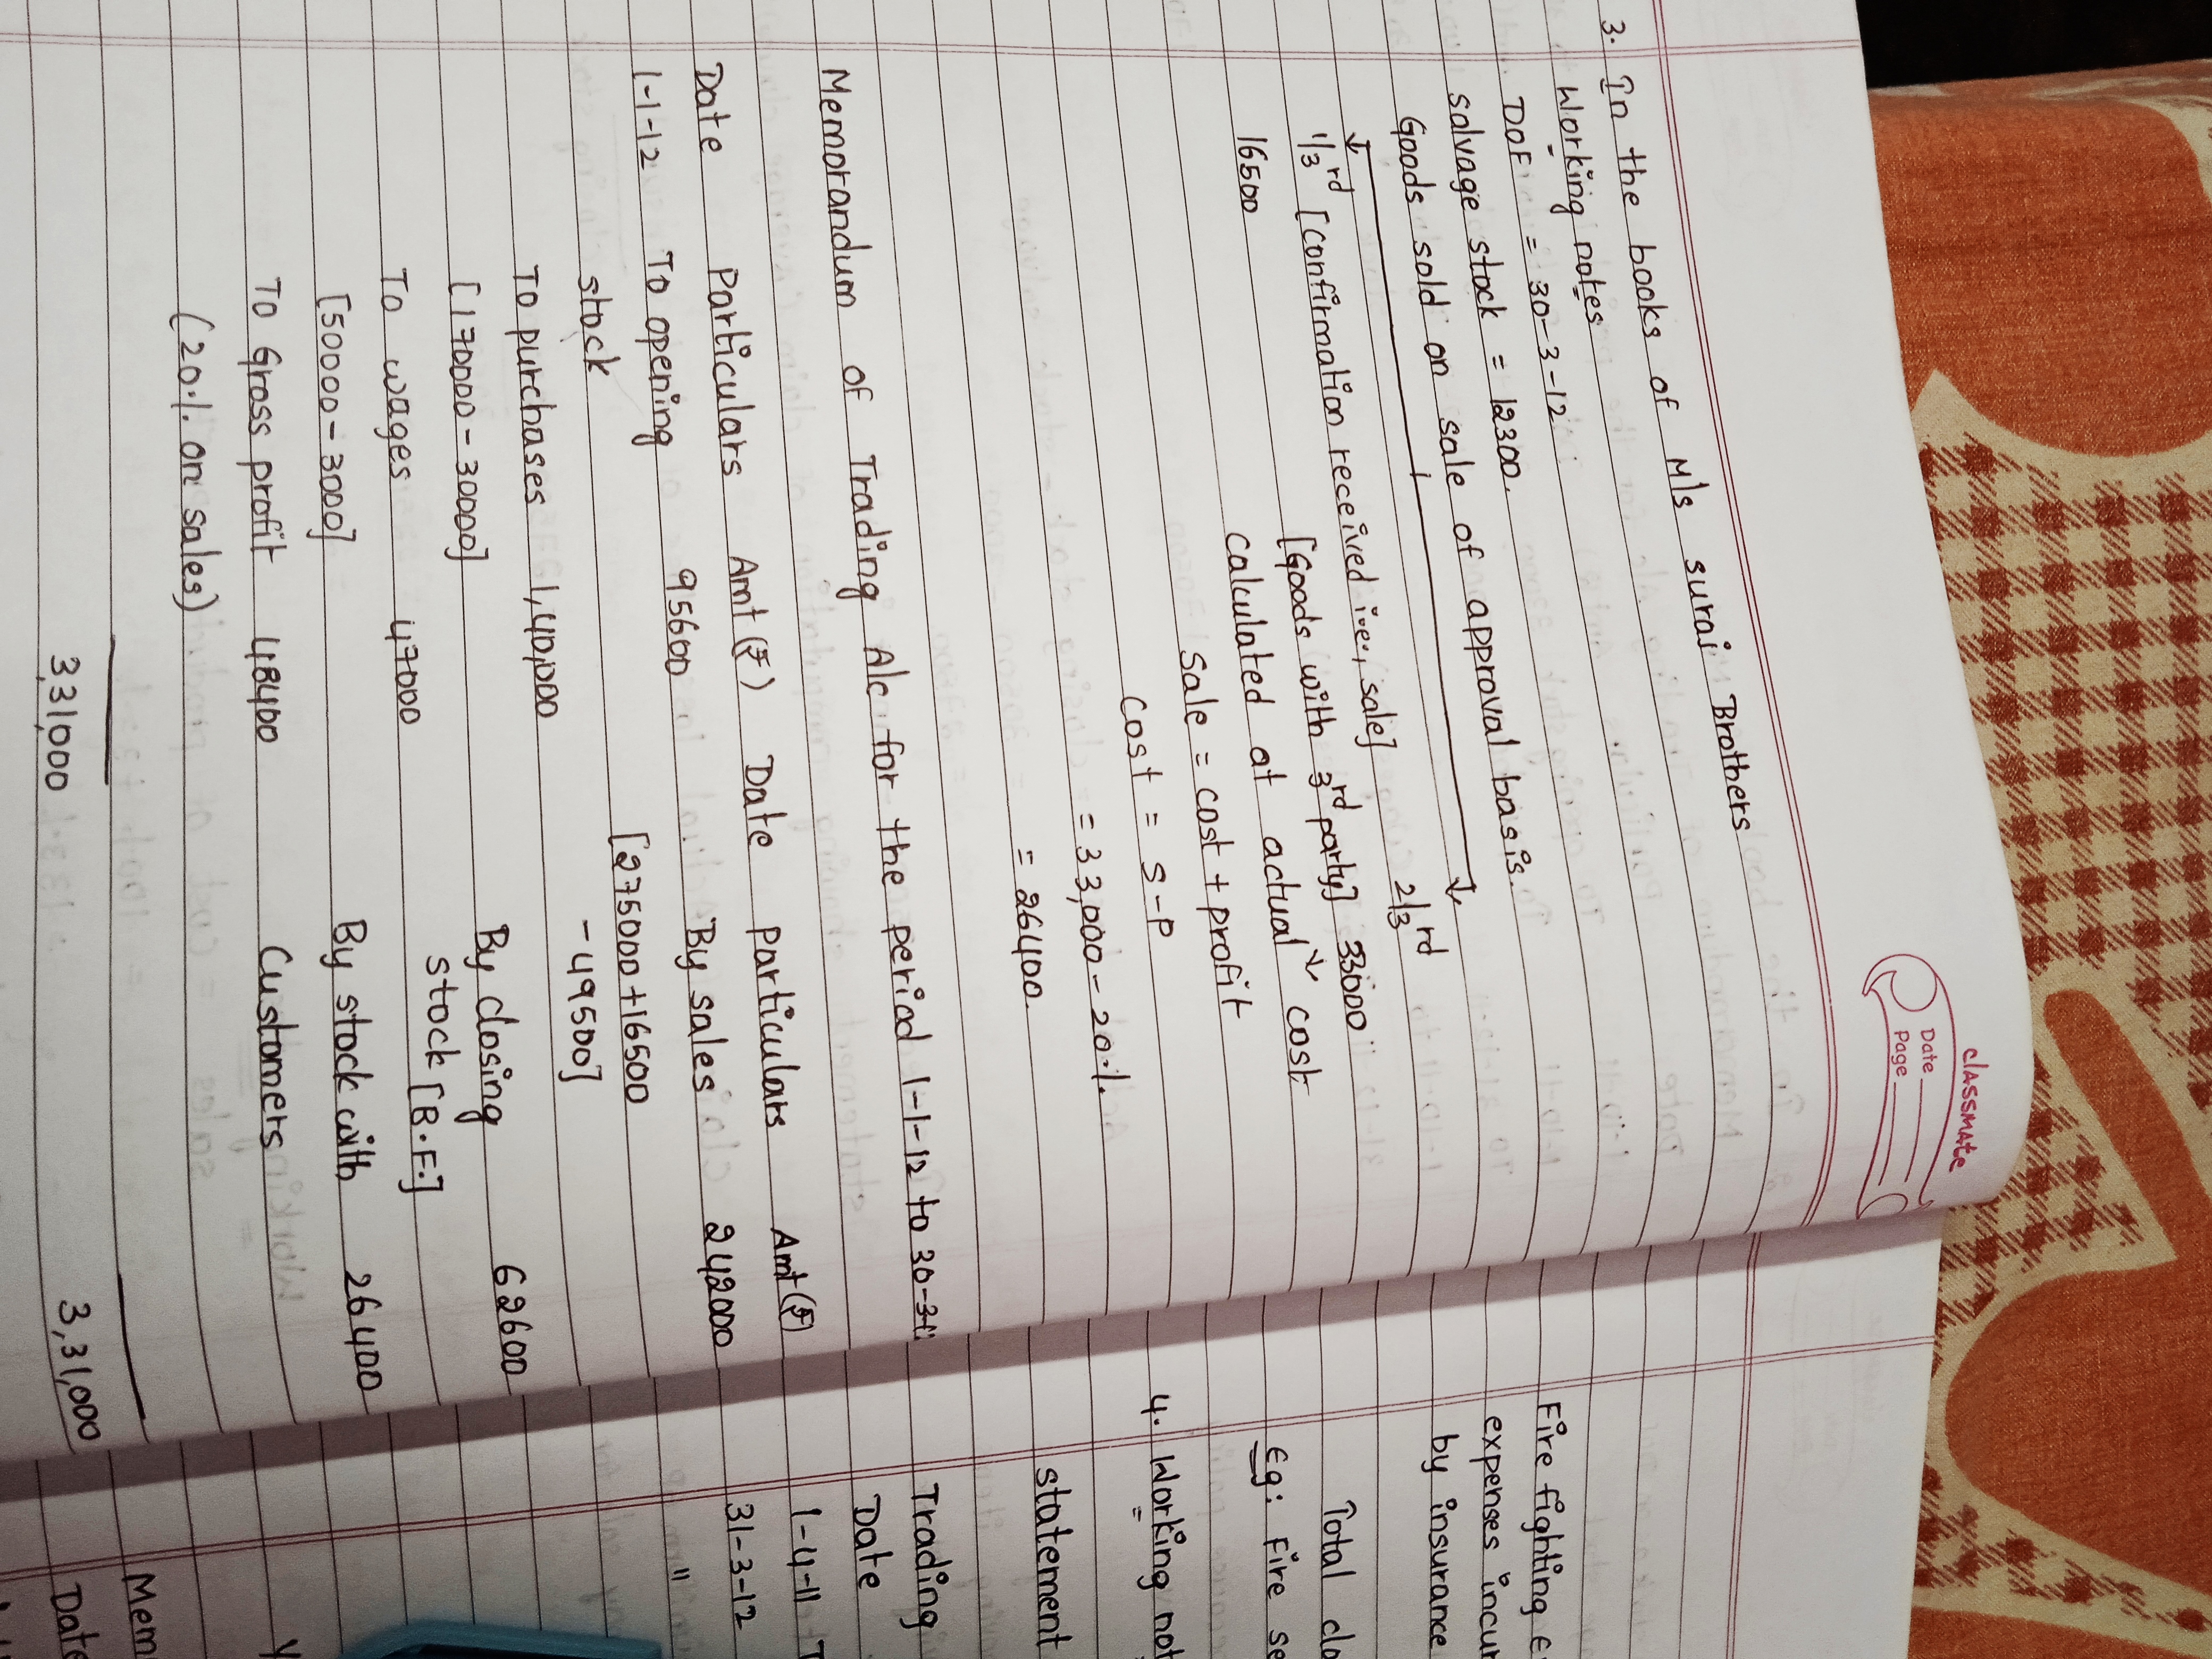 classmate
Date
Page
3. In the books of M/s suraj Brothers
Working notes
DOF = 30-3-12
salvage stock = 12300.
Goods sold on sale of approval basis.
1/3rd [confirmation received i.e., sale] 2/3rd
16500 [Goods with 3rd party] 33000
calculated at actual cost
Sale = cost + profit
cost = S-P
= 33,000 - 20%.
= 26400.
Memorandum of Trading A/c for the period 1-1-12 to 30-3-
Date Particulars Amt (₹) Date particulars Amt (₹)
1-1-12 To opening 95600 By sales 242000
stock [275000+16500
To purchases 1,40,000 -49500]
[170000-30000] By closing 62600
To wages 47000 stock [B.F.]
[50000-3000] By stock with 26400
To Gross profit 48400 Customers
(20% on sales)
3,31,000 3,31,000
Fire fighting
expenses incur
by insurance
Total cla
Eg: Fire se
4. Working not
statement
Trading
Date
1-4-11 T
31-3-12
"
Mem
Date